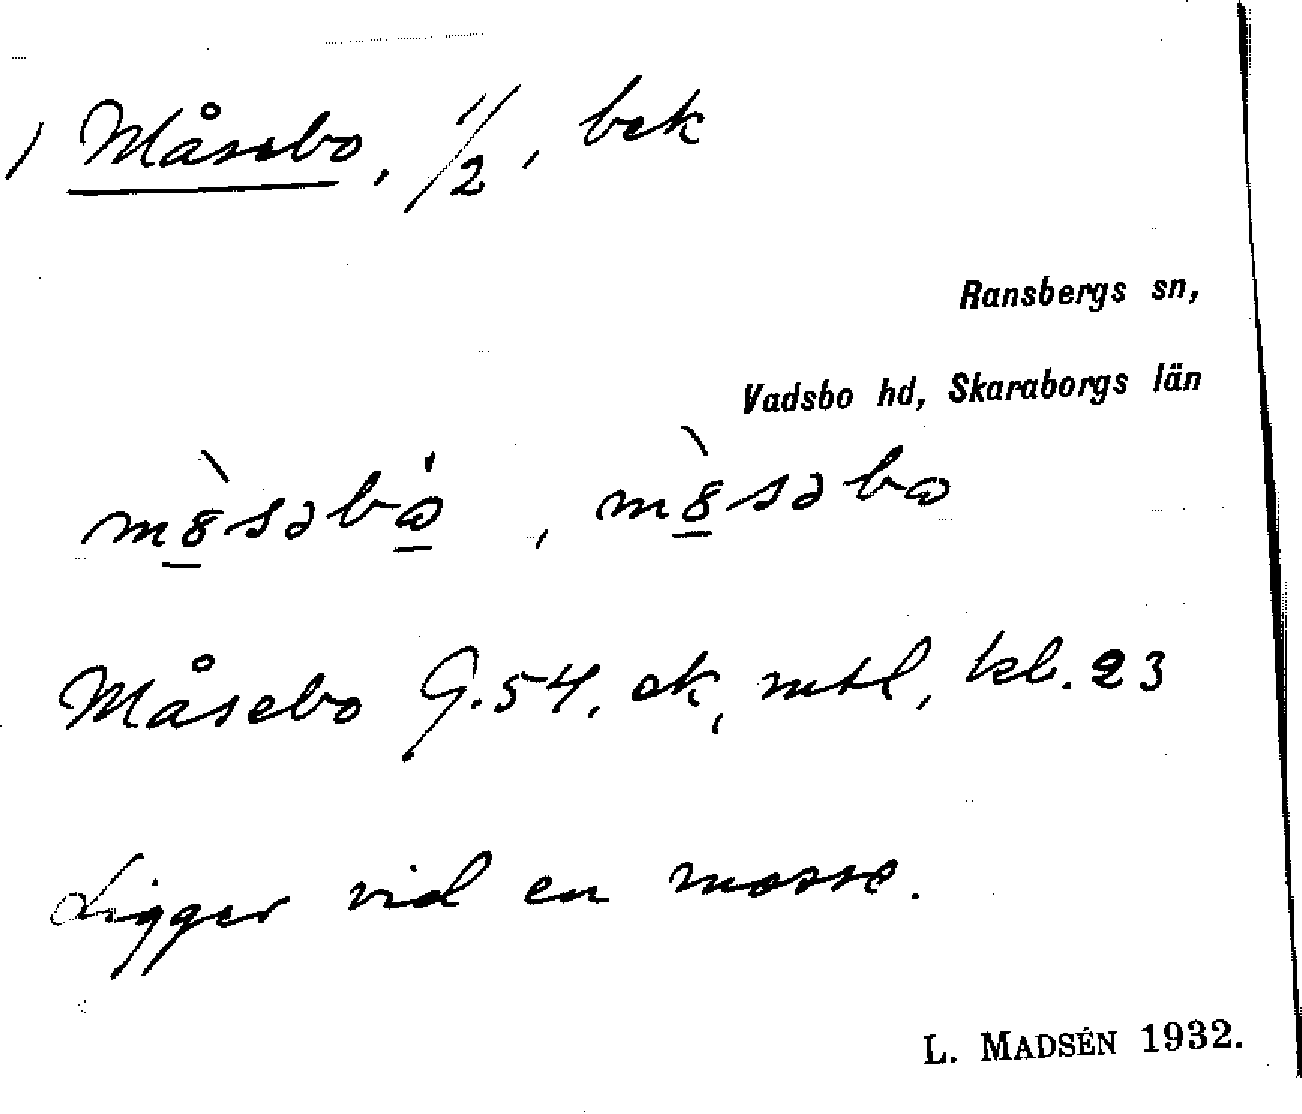 1 Måsebo, 1/2, bek
Ransbergs sn,
Vadsbo hd, Skaraborgs län
Måsebo G.54. ek, mtl, kb. 23
Ligger vid en mosse.
L. MADSÉN 1932.